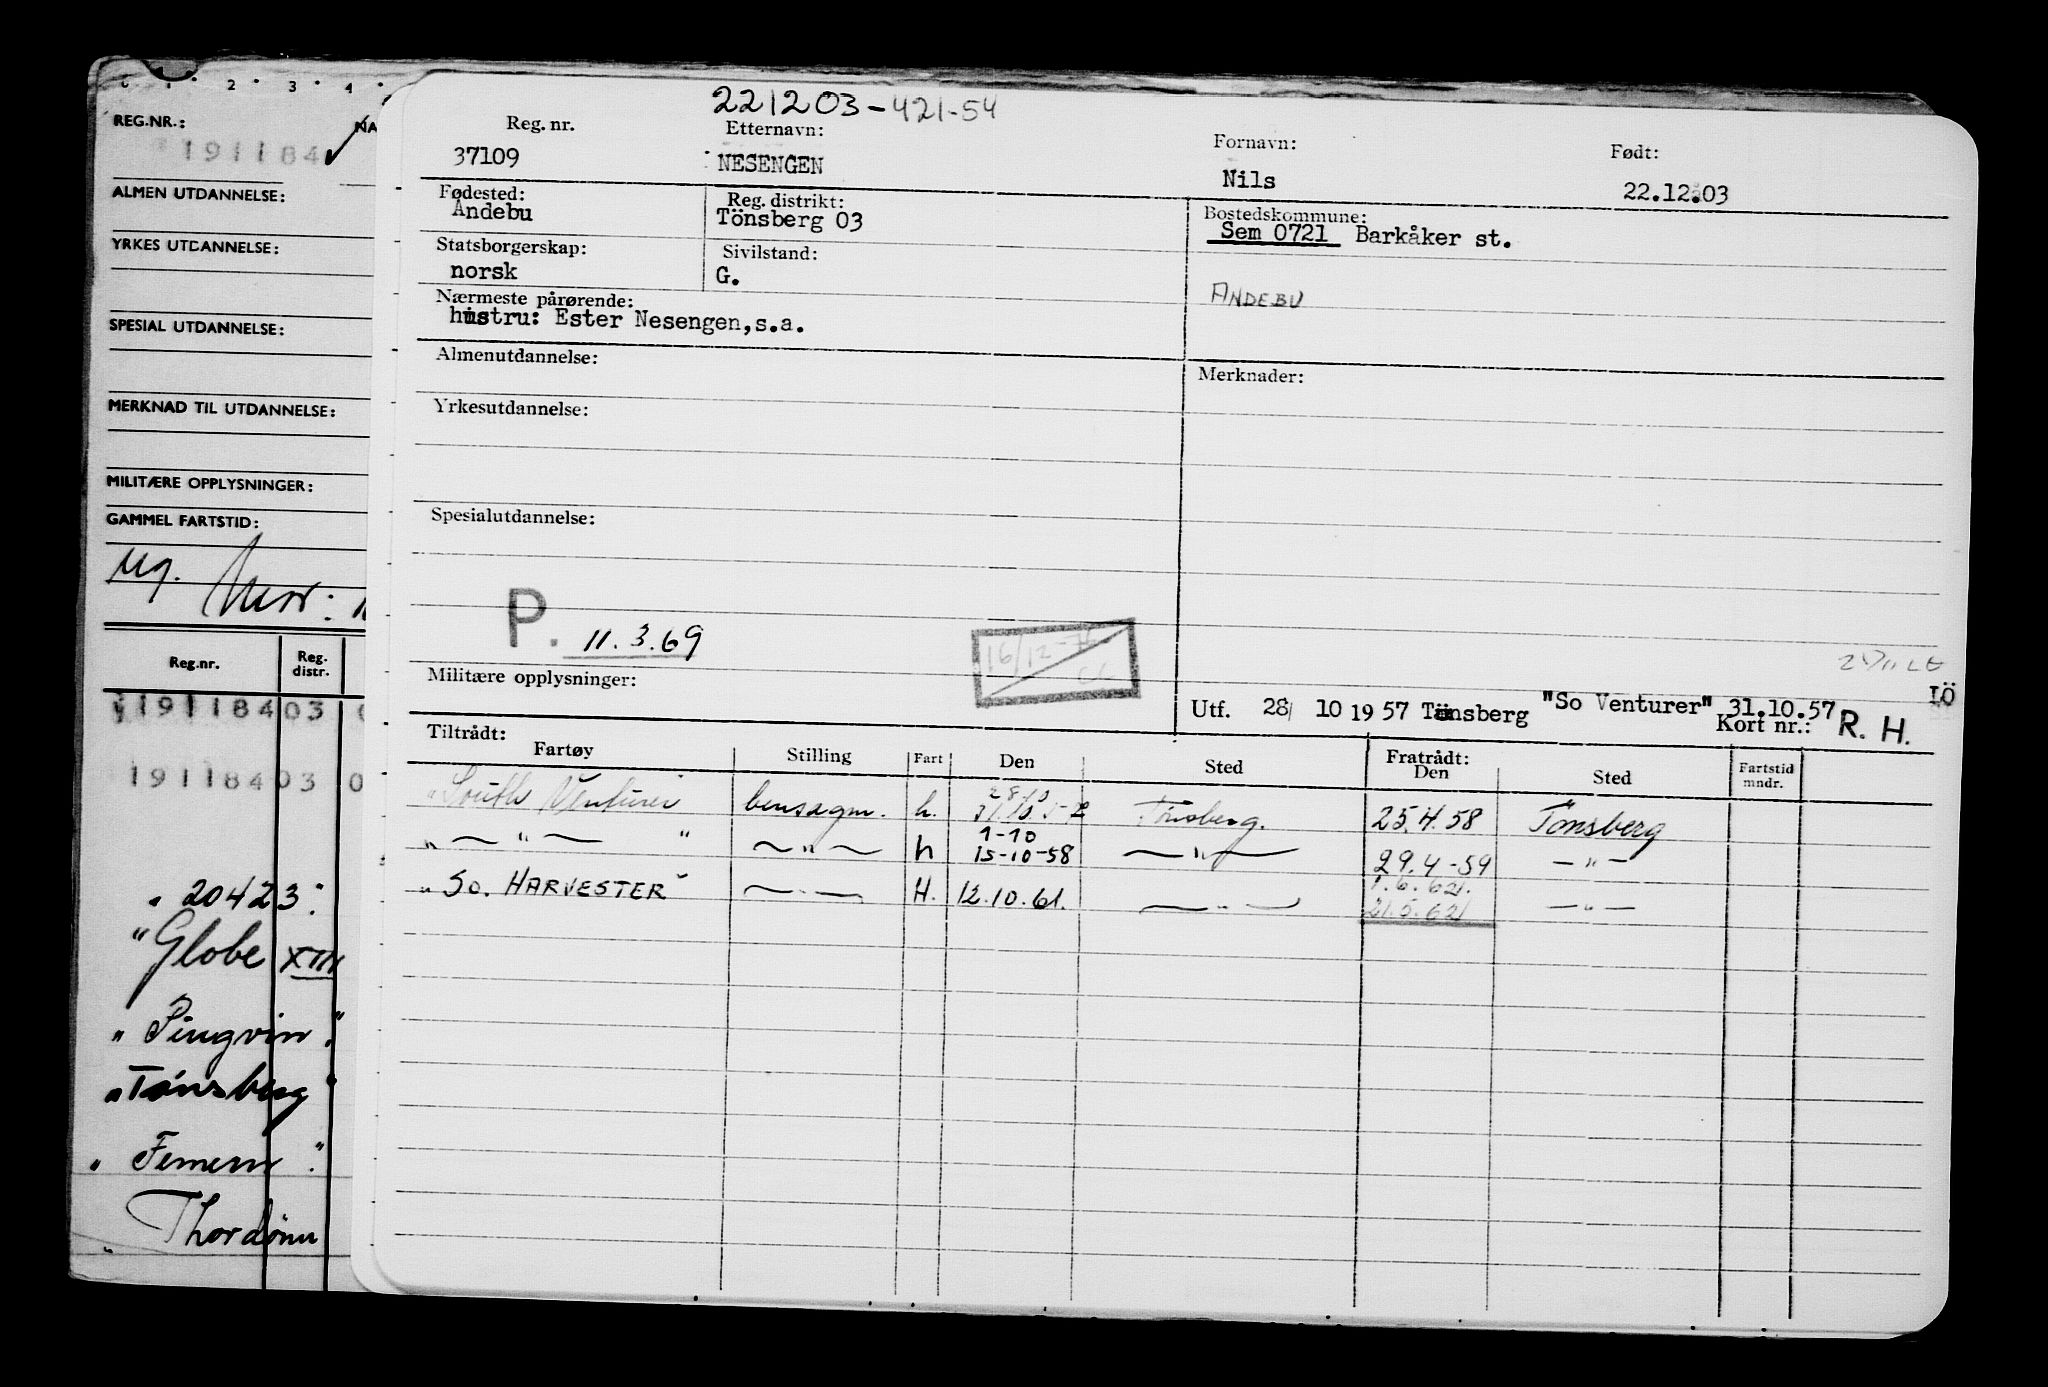 1 2 3 4
REG.NR.:
191184
ALMEN UTDANNELSE:
YRKES UTDANNELSE:
SPESIAL UTDANNELSE:
MERKNAD TIL UTDANNELSE:
MILITÆRE OPPLYSNINGER:
GAMMEL FARTSTID:
Reg.nr. Reg. distr.
191184 03 0
191184 03 0
"20423"
"Globe XIII
"Pingvin"
"Tønsberg"
"Femern"
"Thordønn
221203-421-54
Reg. nr. Etternavn: Fornavn: Født:
37109 NESENGEN Nils 22.12.03
Fødested: Reg. distrikt: Bostedskommune:
Andebu Tönsberg 03 Sem 0721 Barkåker st.
Statsborgerskap: Sivilstand:
norsk G.
ANDEBU
Nærmeste pårørende:
hustru: Ester Nesengen,s.a.
Almenutdannelse: Merknader:
Yrkesutdannelse:
Spesialutdannelse:
P. 11.3.69
16/12-
Militære opplysninger:
IÖ
Utf. 28/ 10 1957 Tønsberg "So Venturer" 31.10.57
Kort nr.: R. H.
Tiltrådt: Fratrådt:
Fartøy Stilling Fart Den Sted Den Sted Fartstid mndr.
"South Venturer bensagm. h. 28.10 31.10.57 Tønsberg. 25.4.58 Tønsberg
" — " — " — " — h 1-10 15-10-58 — " — 29.4-59 — " —
"So. HARVESTER" — " — H. 12.10.61. — " — 1.6.62. 21.5.62 — " —